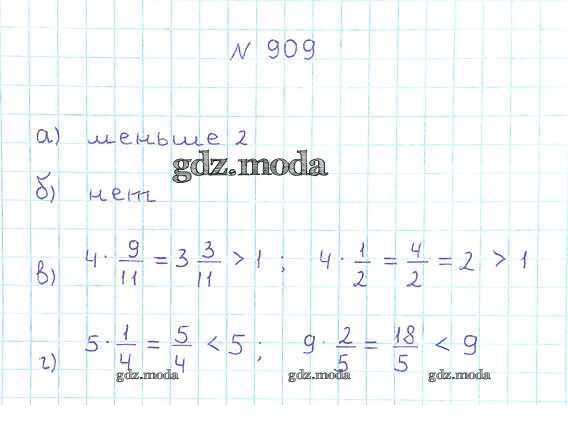 N 909
а) меньше 2
gdz.moda
б) нет
в) 4 · 9/11 = 3 3/11 > 1 ; 4 · 1/2 = 4/2 = 2 > 1
г) 5 · 1/4 = 5/4 < 5 ; 9 · 2/5 = 18/5 < 9
gdz.moda gdz.moda gdz.moda